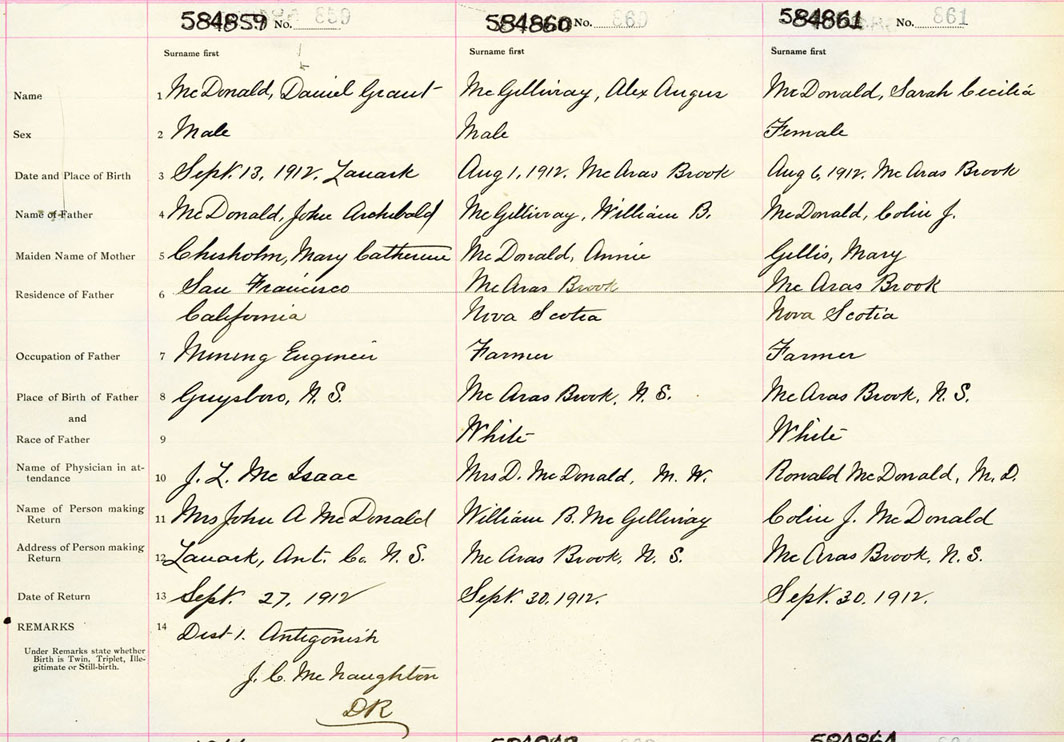 584859 No. 859 584860 No. 860 584861 No. 861
Surname first Surname first Surname first
Name 1 McDonald, Daniel Grant McGillivray, Alex Angus McDonald, Sarah Cecilia
Sex 2 Male Male Female
Date and Place of Birth 3 Sept. 13, 1912. Lanark Aug 1, 1912. McAras Brook Aug 6, 1912. McAras Brook
Name of Father 4 McDonald, John Archibald McGillivray, William B. McDonald, Colin J.
Maiden Name of Mother 5 Chisholm, Mary Catherine McDonald, Annie Gillis, Mary
Residence of Father 6 San Francisco McAras Brook McAras Brook
California Nova Scotia Nova Scotia
Occupation of Father 7 Mining Engineer Farmer Farmer
Place of Birth of Father 8 Guysboro, N.S. McAras Brook, N.S. McAras Brook, N.S.
and
Race of Father 9 White White
Name of Physician in at-
tendance 10 J. L. McIsaac Mrs D. McDonald, M.W. Ronald McDonald, M.D.
Name of Person making
Return 11 Mrs John A McDonald William B. McGillivray Colin J. McDonald
Address of Person making
Return 12 Lanark, Ant. Co. N.S. McAras Brook, N.S. McAras Brook, N.S.
Date of Return 13 Sept. 27, 1912 Sept. 30. 1912. Sept. 30. 1912.
REMARKS 14 Dist 1. Antigonish
Under Remarks state whether
Birth is Twin, Triplet, Ille-
gitimate or Still-birth.
J. C. McNaughton
DR